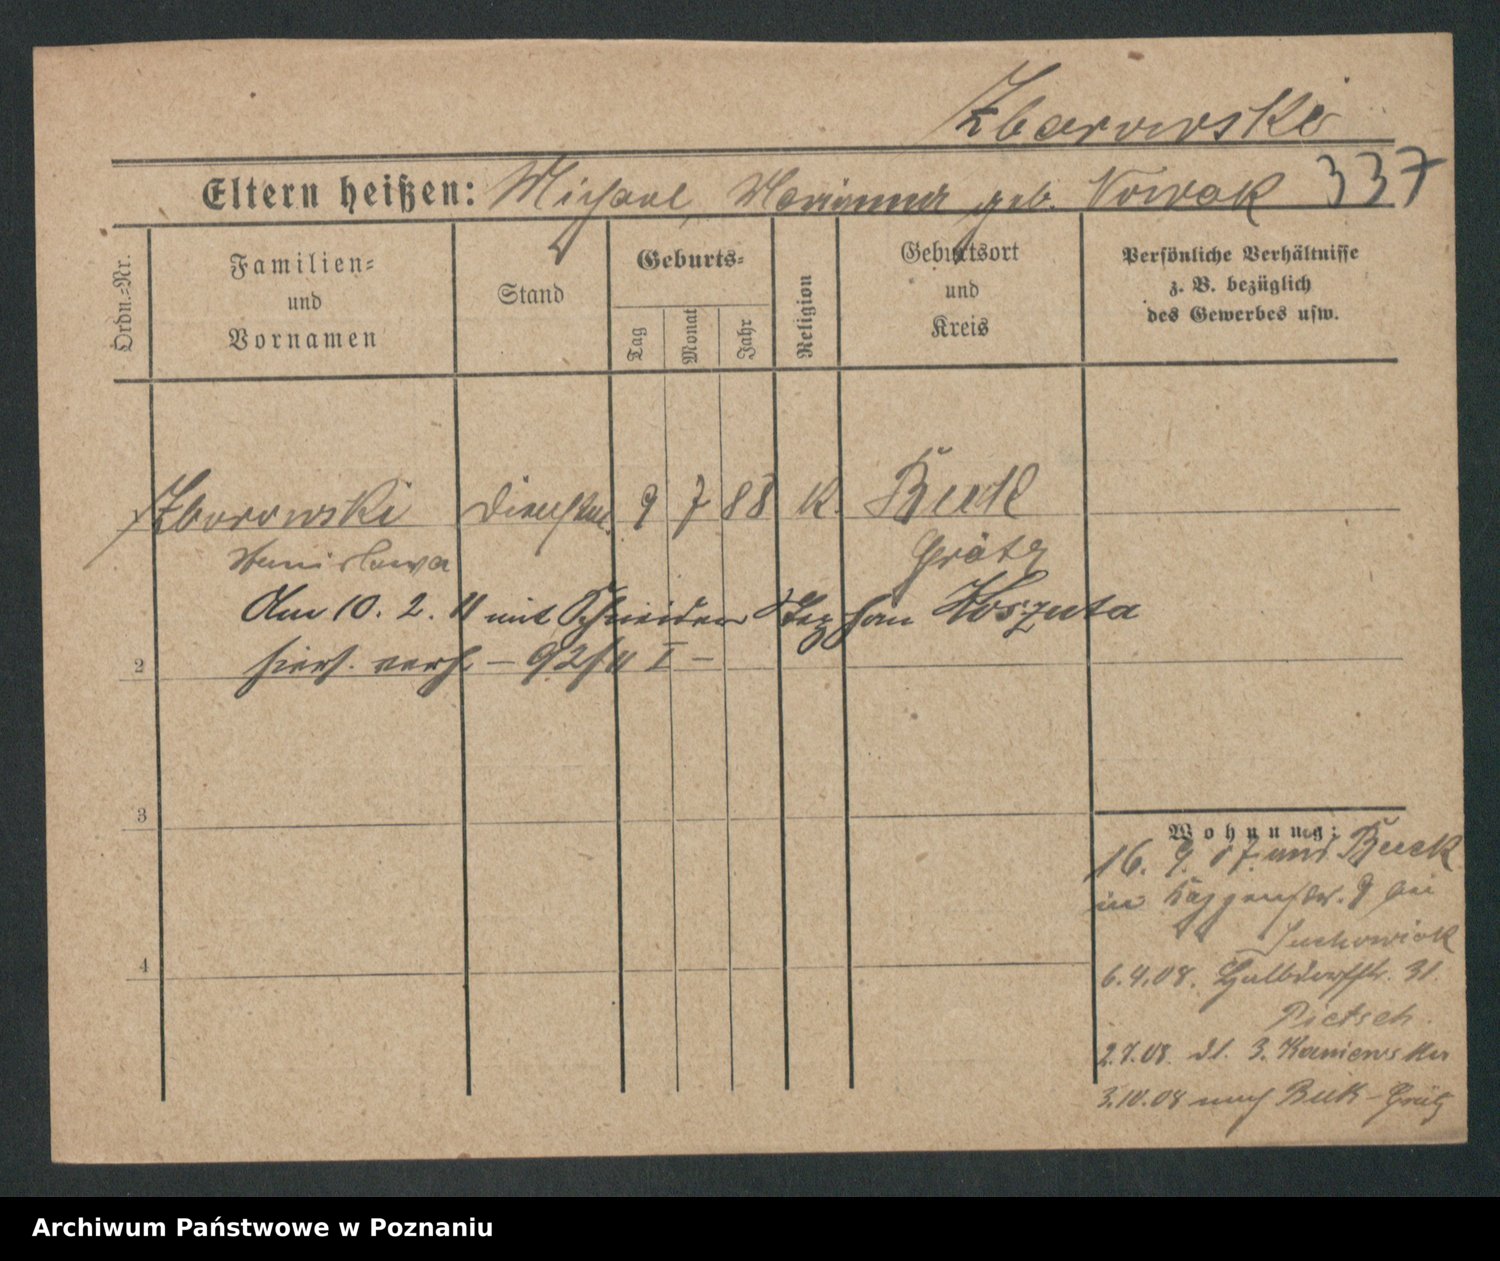 Zborowski
Eltern heißen: Michael, Marianna geb. Nowak 337
Ordn.-Nr.
Familien-
und
Vornamen
Stand
Geburts-
Tag
Monat
Jahr
Religion
Geburtsort
und
Kreis
Persönliche Verhältnisse
z. B. bezüglich
des Gewerbes usw.
Zborowski 9 7 88 K. Buck
Stanislawa Grätz
Am 10. 2. 11 mit Schneider Stephan Koszuta
2 hiers. verh. – 92/11 I –
3
4
Wohnung:
16. 9. 07 Buck
in 9 bei
6.4.08. Halbdorfstr. 31.
Pietsch.
2.7.08. 3. Kaniewska
3.10.08 nach Buk - Grätz
Archiwum Państwowe w Poznaniu